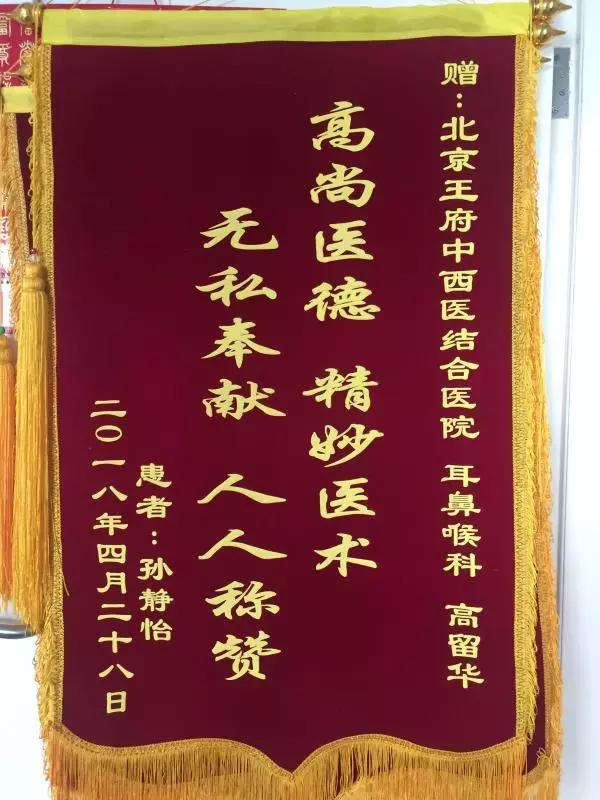 赠：北京王府中西医结合医院 耳鼻喉科 高留华
高尚医德 精妙医术
无私奉献 人人称赞
患者：孙静怡
二〇一八年四月二十八日